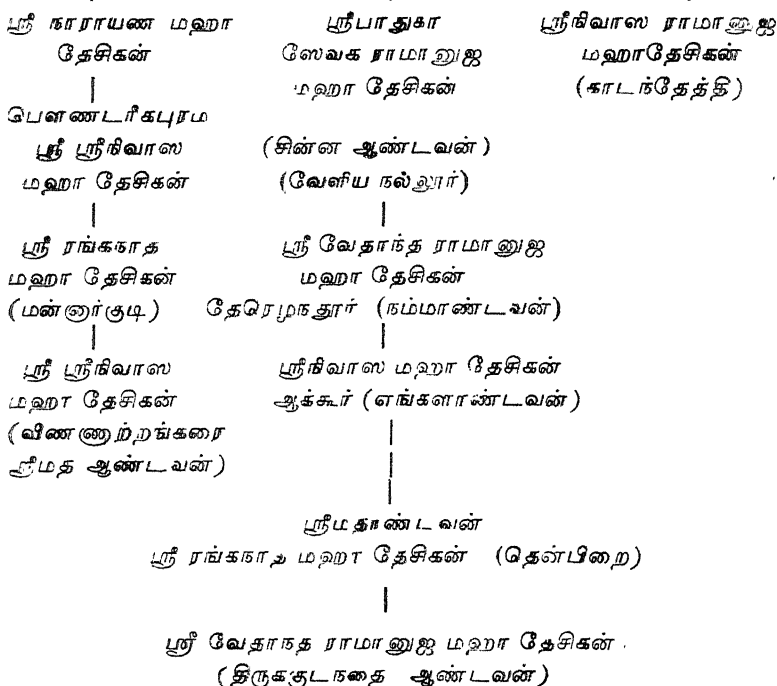 ஸ்ரீ நாராயண மஹா
தேசிகன்
பௌண்டரீகபுரம்
ஸ்ரீ ஸ்ரீநிவாஸ
மஹா தேசிகன்
ஸ்ரீ ரங்கநாத
மஹா தேசிகன்
(மன்னார்குடி)
ஸ்ரீ ஸ்ரீநிவாஸ
மஹா தேசிகன்
(விண்ணாற்றங்கரை
ஸ்ரீமத் ஆண்டவன்)
ஸ்ரீபாதுகா
ஸேவக ராமானுஜ
மஹா தேசிகன்
(சின்ன ஆண்டவன்)
(வேளிய நல்லூர்)
ஸ்ரீ வேதாந்த ராமானுஜ
மஹா தேசிகன்
தேரெழுந்தூர் (நம்மாண்டவன்)
ஸ்ரீநிவாஸ மஹா தேசிகன்
ஆக்கூர் (எங்களாண்டவன்)
ஸ்ரீநிவாஸ ராமானுஜ
மஹாதேசிகன்
(காடந்தேத்தி)
ஸ்ரீமதாண்டவன்
ஸ்ரீ ரங்கநாத மஹா தேசிகன் (தென்பிறை)
ஸ்ரீ வேதாந்த ராமானுஜ மஹா தேசிகன்
(திருக்குடந்தை ஆண்டவன்)